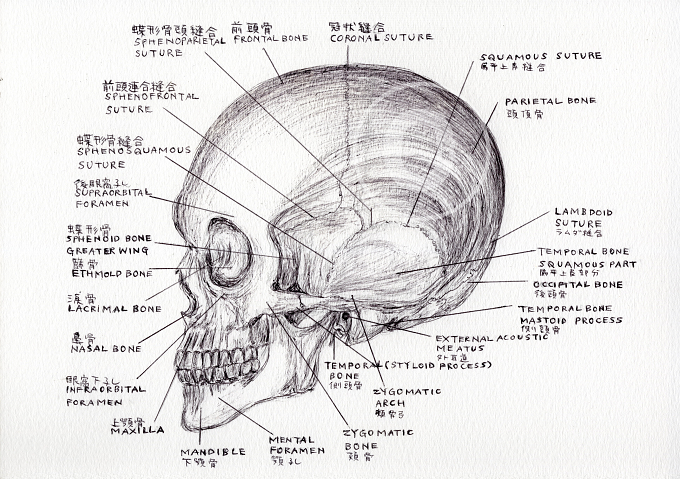 蝶形骨頭縫合
SPHENOPARIETAL
SUTURE
前頭骨
FRONTAL BONE
冠状縫合
CORONAL SUTURE
SQUAMOUS SUTURE
縫合
PARIETAL BONE
頭頂骨
前頭連合縫合
SPHENOFRONTAL
SUTURE
蝶形骨縫合
SPHENOSQUAMOUS
SUTURE
SUPRAORBITAL
FORAMEN
蝶形骨
SPHENOID BONE
GREATER WING
篩骨
ETHMOLD BONE
涙骨
LACRIMAL BONE
鼻骨
NASAL BONE
眼窩下孔
INFRAORBITAL
FORAMEN
上顎骨
MAXILLA
MANDIBLE
下顎骨
MENTAL
FORAMEN
ZYGOMATIC
BONE
頬骨
ZYGOMATIC
ARCH
TEMPORAL (STYLOID PROCESS)
BONE
側頭骨
EXTERNAL ACOUSTIC
MEATUS
外耳道
TEMPORAL BONE
MASTOID PROCESS
側頭骨
OCCIPITAL BONE
後頭骨
TEMPORAL BONE
SQUAMOUS PART
LAMBDOID
SUTURE
ラムダ縫合